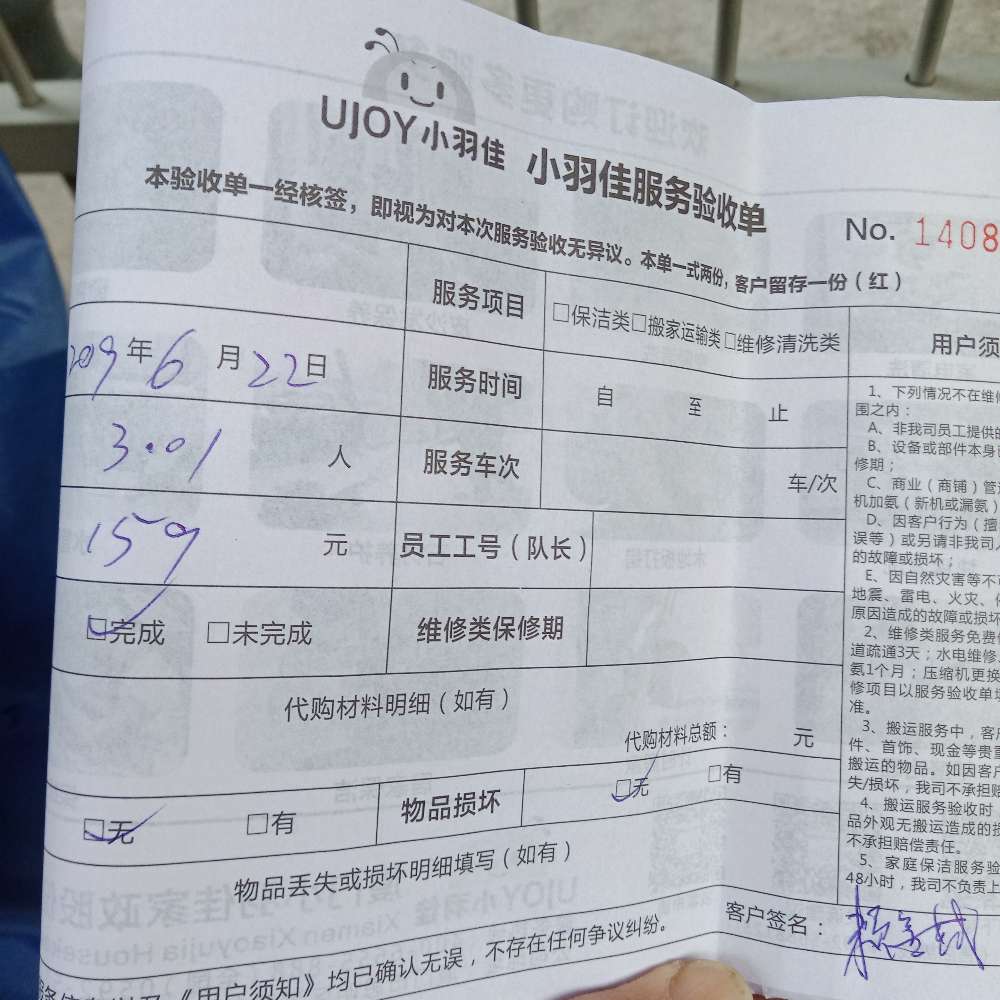 UJOY小羽佳 小羽佳服务验收单
No. 1408
本验收单一经核签，即视为对本次服务验收无异议。本单一式两份，客户留存一份（红）
服务项目 □保洁类□搬家运输类□维修清洗类
年6月22日 服务时间 自 至 止
3.01 人 服务车次 车/次
159 元 员工工号（队长）
☑完成 □未完成 维修类保修期
代购材料明细（如有）
代购材料总额： 元
☑无 □有 物品损坏 ☑无 □有
物品丢失或损坏明细填写（如有）
客户签名：
《用户须知》均已确认无误，不存在任何争议纠纷。
用户须
1、下列情况不在维
围之内：
A、非我司员工提供的
B、设备或部件本身
修期；
C、商业（商铺）管
机加氨（新机或漏氨）
D、因客户行为（擅
误等）或另请非我司
的故障或损坏；
E、因自然灾害等不
地震、雷电、火灾、
原因造成的故障或损坏
2、维修类服务免费
道疏通3天；水电维修
氨1个月；压缩机更换
修项目以服务验收单
准。
3、搬运服务中，客
件、首饰、现金等贵
搬运的物品。如因客户
失/损坏，我司不承担
4、搬运服务验收时
品外观无搬运造成的
不承担赔偿责任。
5、家庭保洁服务验
48小时，我司不负责上